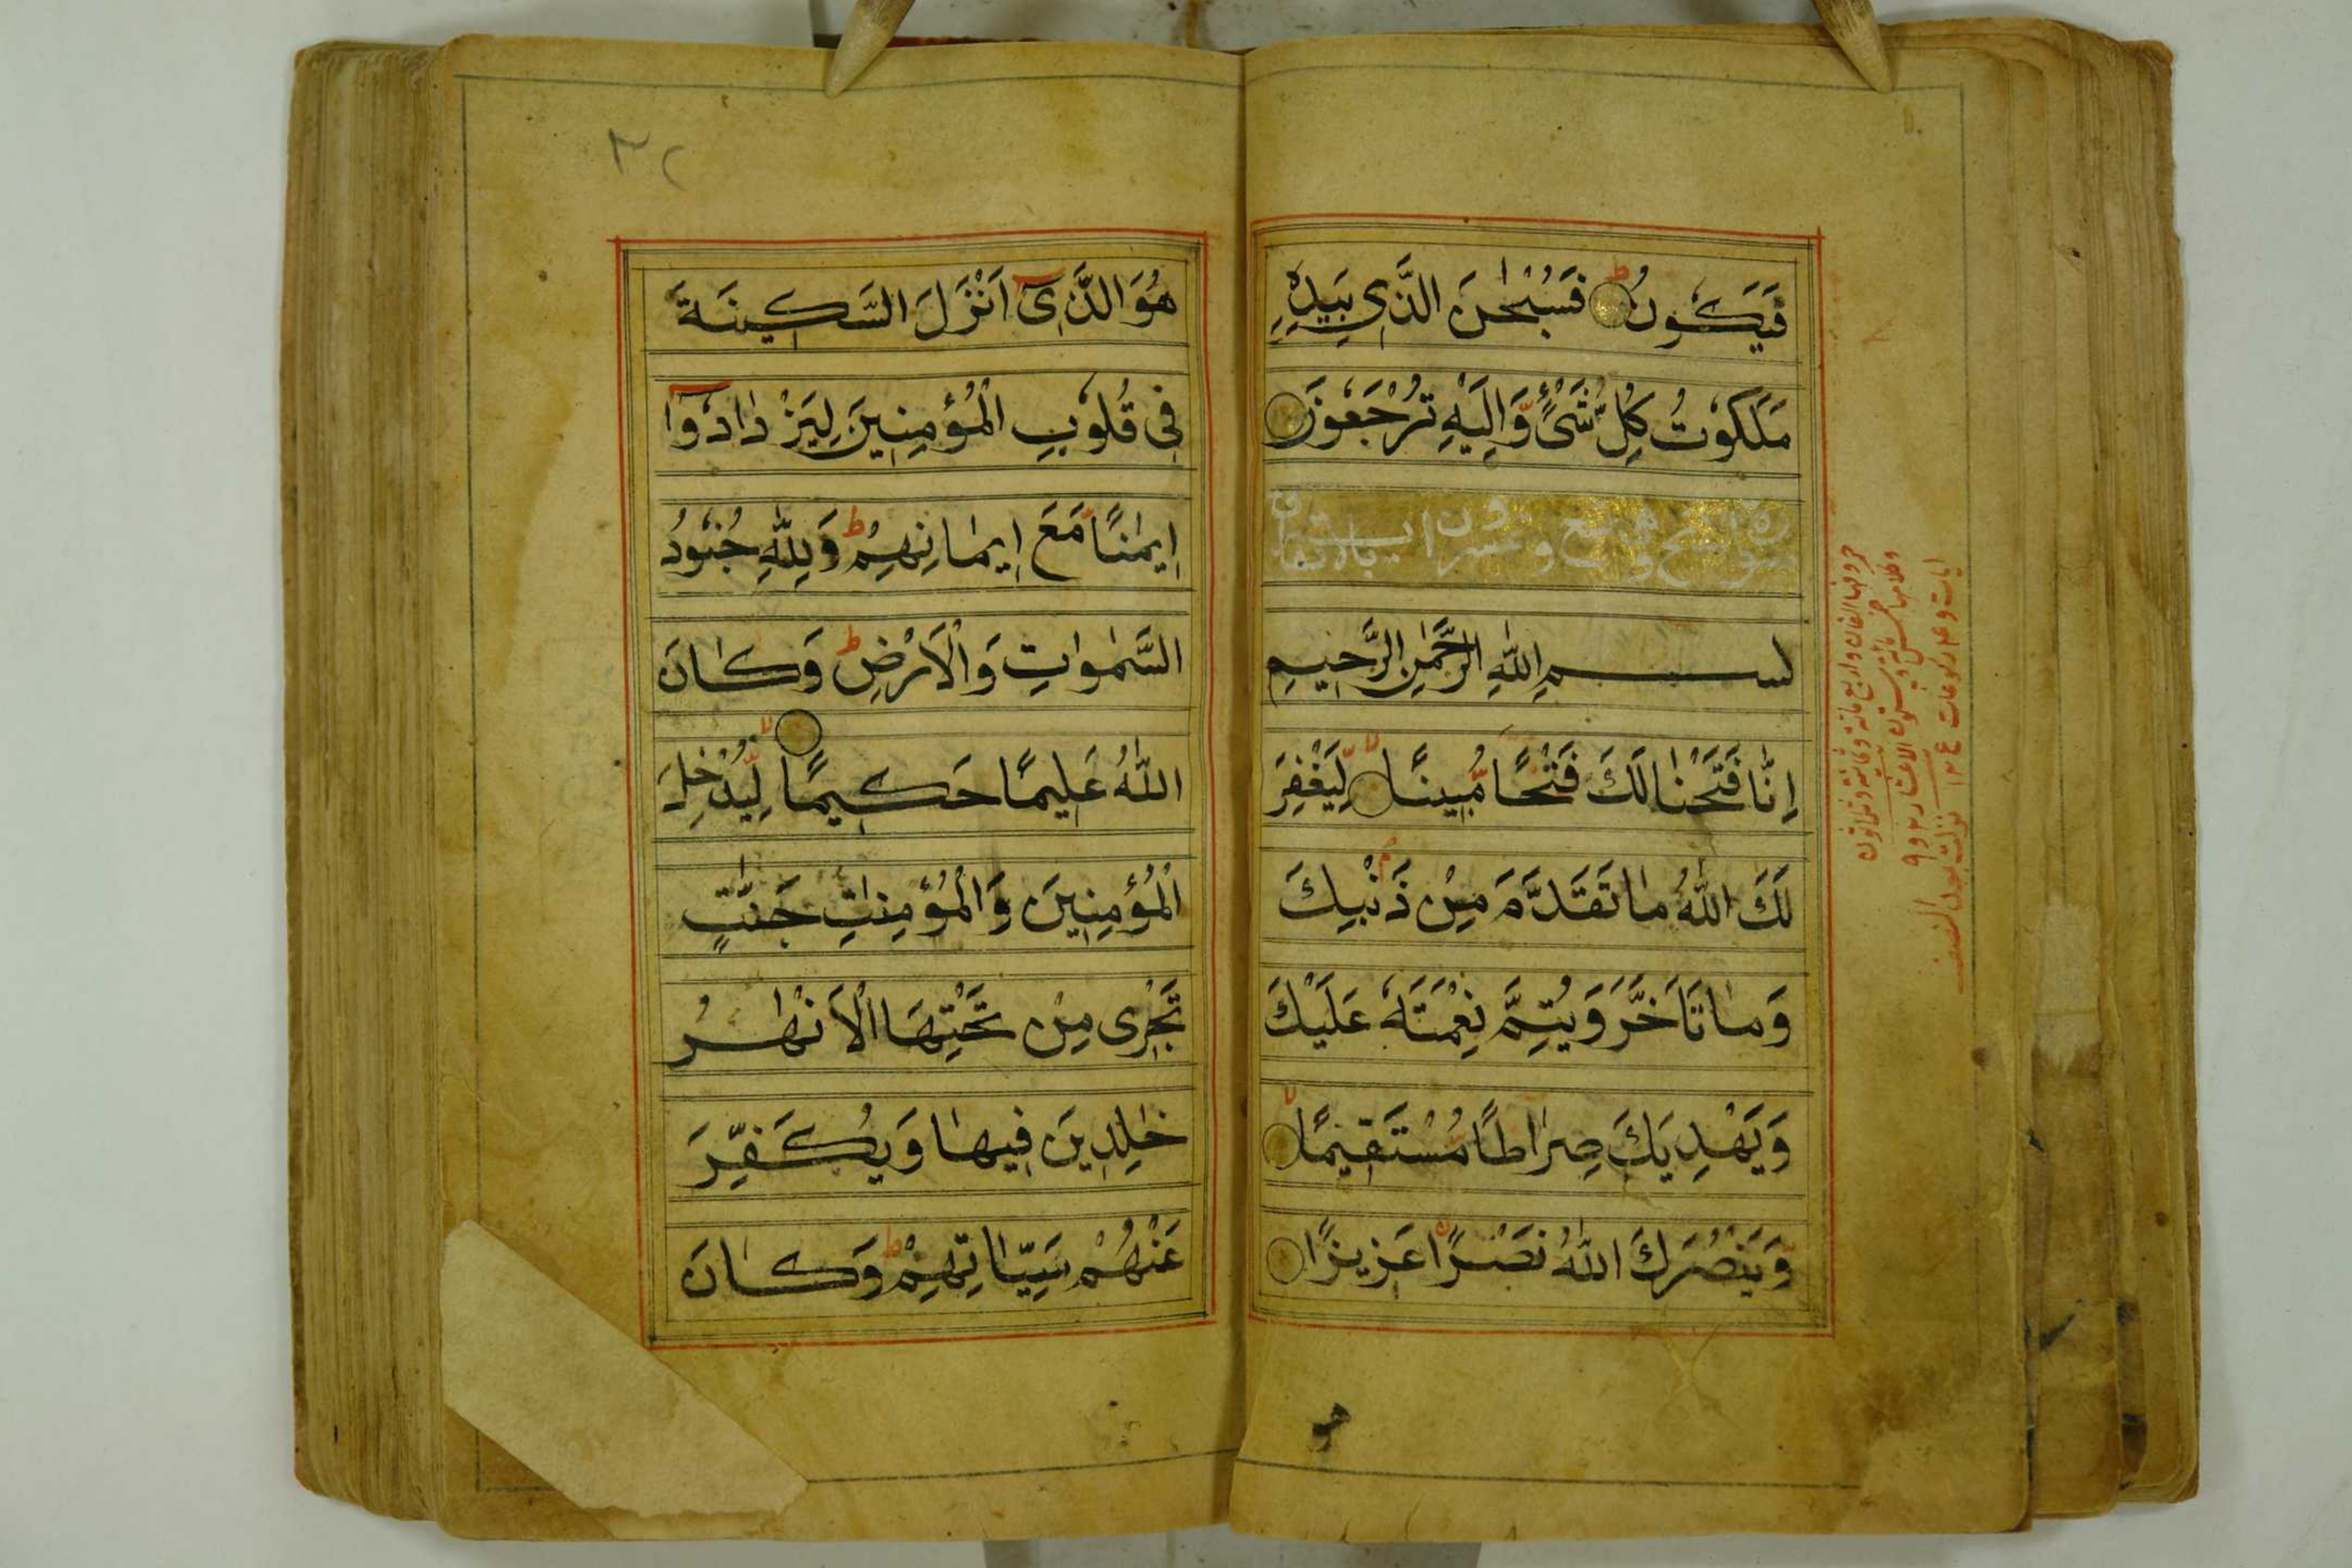 فَيَكُونُ فَسُبْحٰنَ الَّذِي بِيَدِهِ
مَلَكُوْتُ كُلِّ شَىْءٍ وَّاِلَيْهِ تُرْجَعُوْنَ
سورة الفتح
بسم اللهِ الرَّحْمٰنِ الرَّحِيمِ
اِنَّا فَتَحْنَا لَكَ فَتْحًا مُّبِينًا لِّيَغْفِرَ
لَكَ اللهُ مَا تَقَدَّمَ مِنْ ذَنْبِكَ
وَمَا تَاَخَّرَ وَيُتِمَّ نِعْمَتَهٗ عَلَيْكَ
وَيَهْدِيَكَ صِرَاطًا مُّسْتَقِيْمًا
وَّيَنْصُرَكَ اللهُ نَصْرًا عَزِيزًا
٣٢
هُوَ الَّذِىٓ اَنْزَلَ السَّكِينَةَ
فِى قُلُوبِ الْمُؤْمِنِينَ لِيَزْدَادُوْٓا
اِيمٰنًا مَّعَ اِيمَانِهِمْ ط وَلِلّٰهِ جُنُوْدُ
السَّمٰوٰتِ وَالْاَرْضِ ط وَكَانَ
اللهُ عَلِيمًا حَكِيمًا لِّيُدْخِلَ
الْمُؤْمِنِينَ وَالْمُؤْمِنٰتِ جَنّٰتٍ
تَجْرِى مِنْ تَحْتِهَا الْاَنْهٰرُ
خٰلِدِينَ فِيهَا وَيُكَفِّرَ
عَنْهُمْ سَيِّاٰتِهِمْ ط وَكَانَ